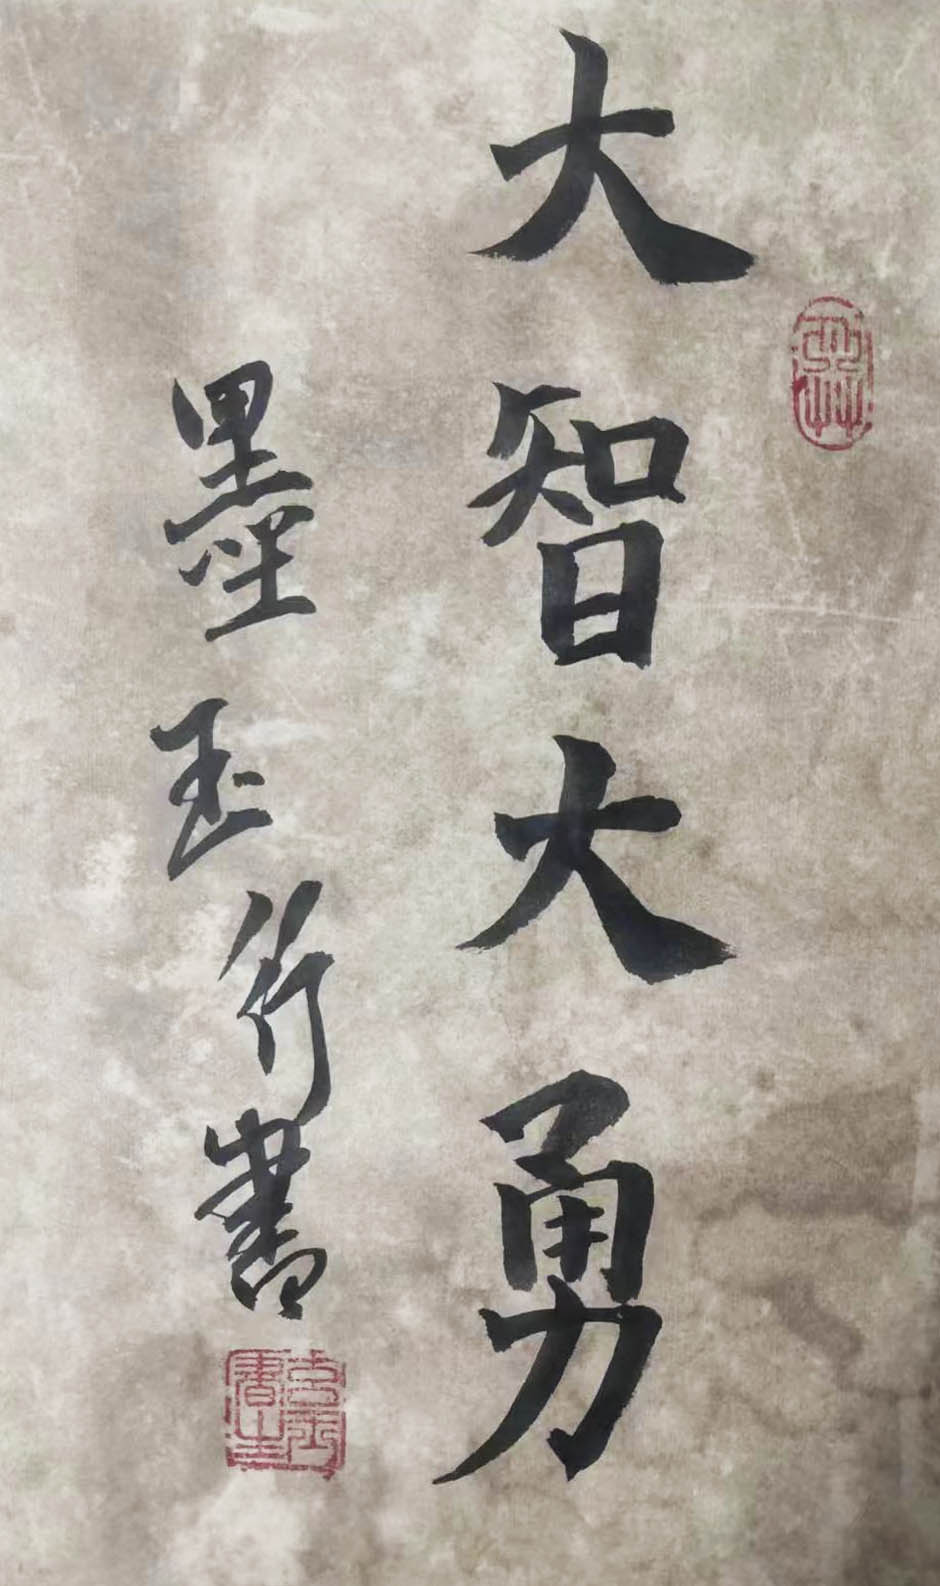 大智大勇
墨玉竹書